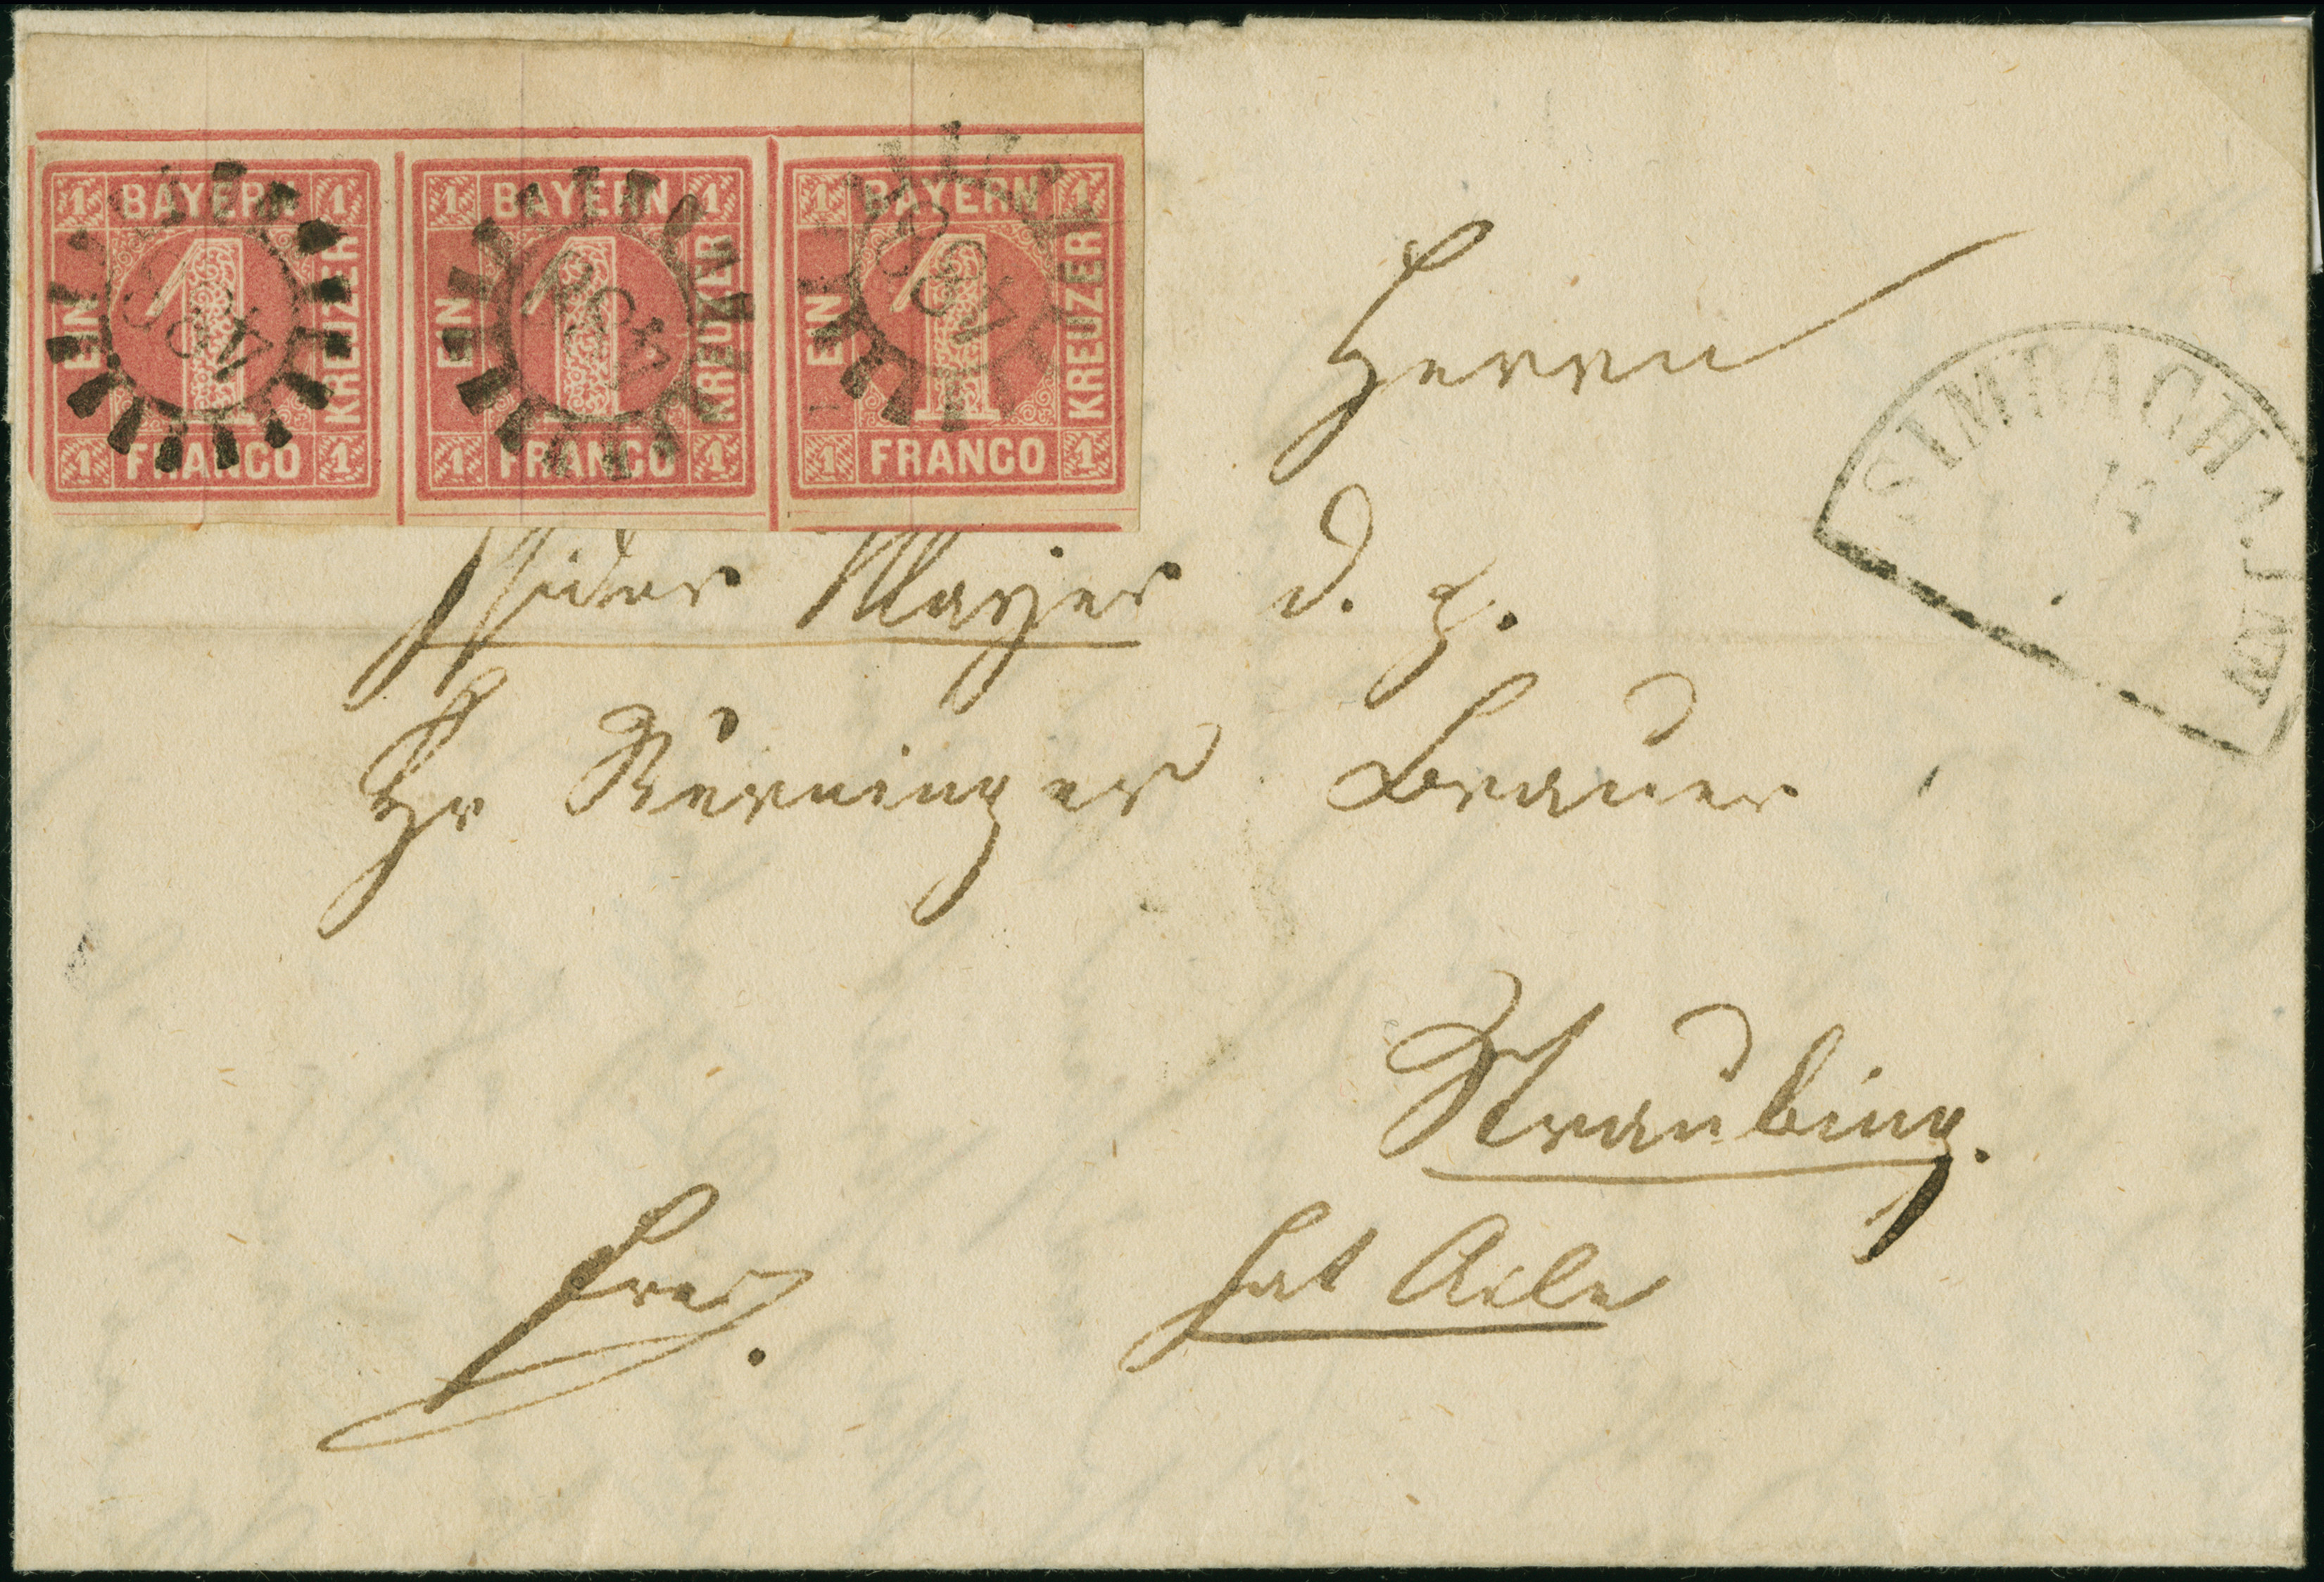 1 BAYERN 1 1 BAYERN 1 1 BAYERN 1
EIN 1 KREUZER EIN 1 KREUZER EIN 1 KREUZER
1 FRANCO 1 1 FRANCO 1 1 FRANCO 1
SIMBACH A. INN
Herrn
Mayer d. h.
Hr Brauer
Straubing.
frei.
hat Eile